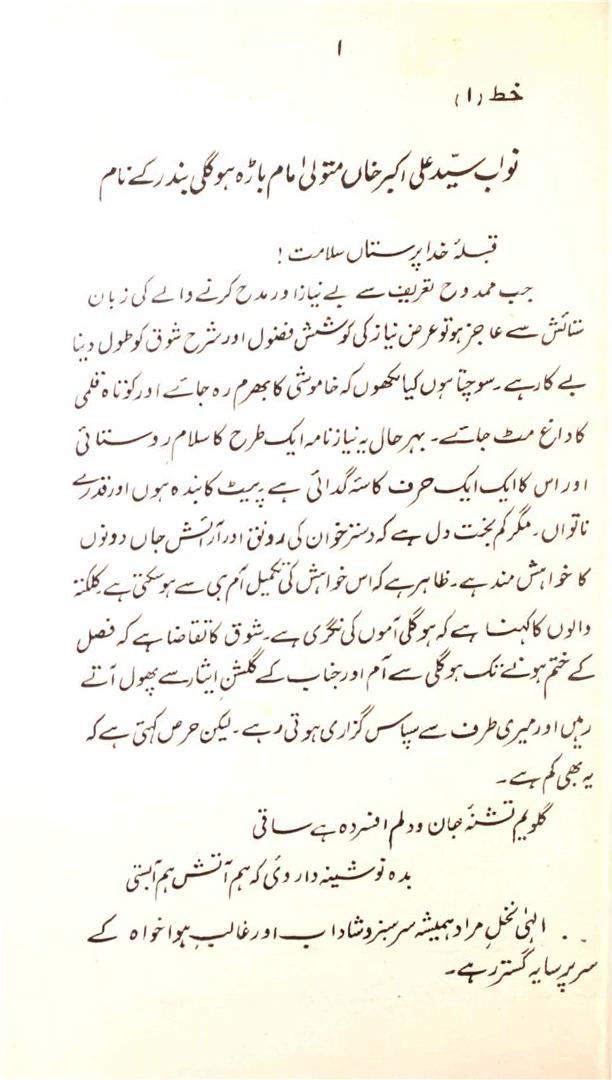 ۱
خط (۱)
نواب سیّد علی اکبر خاں متولی امام باڑہ ہوگلی بندر کے نام
قبلۂ خدا پرستاں سلامت!
جب ممدوح تعریف سے بے نیاز اور مدح کرنے والے کی زبان
ستائش سے عاجز ہو تو عرض نیاز کی کوشش فضول اور شرح شوق کو طول دینا
بے کار ہے۔ سوچتا ہوں کیا لکھوں کہ خاموشی کا بھرم رہ جائے اور کوتاہ قلمی
کا داغ مٹ جائے۔ بہر حال یہ نیاز نامہ ایک طرح کا سلام روستائی
اور اس کا ایک ایک حرف کاسۂ گدائی ہے پیٹ کا بندہ ہوں اور قدرے
ناتواں۔ مگر کم بخت دل ہے کہ دسترخوان کی رونق اور آرائش جاں دونوں
کا خواہش مند ہے۔ ظاہر ہے کہ اس خواہش کی تکمیل آم ہی سے ہو سکتی ہے کلکتہ
والوں کا کہنا ہے کہ ہوگلی آموں کی نگری ہے۔ شوق کا تقاضا ہے کہ فصل
کے ختم ہونے تک ہوگلی سے آم اور جناب کے گلشنِ ایثار سے پھول آتے
رہیں اور میری طرف سے سپاس گزاری ہوتی رہے۔ لیکن حرص کہتی ہے کہ
یہ بھی کم ہے۔
گلویم تشنۂ جان و دلم افسردہ ہے ساقی
بدہ نوشینہ داروئی کہ ہم آتش ہم آبستی
الہٰی نخلِ مراد ہمیشہ سرسبز و شاداب اور غالبِ ہوا خواہ کے
سر پر سایہ گستر رہے۔